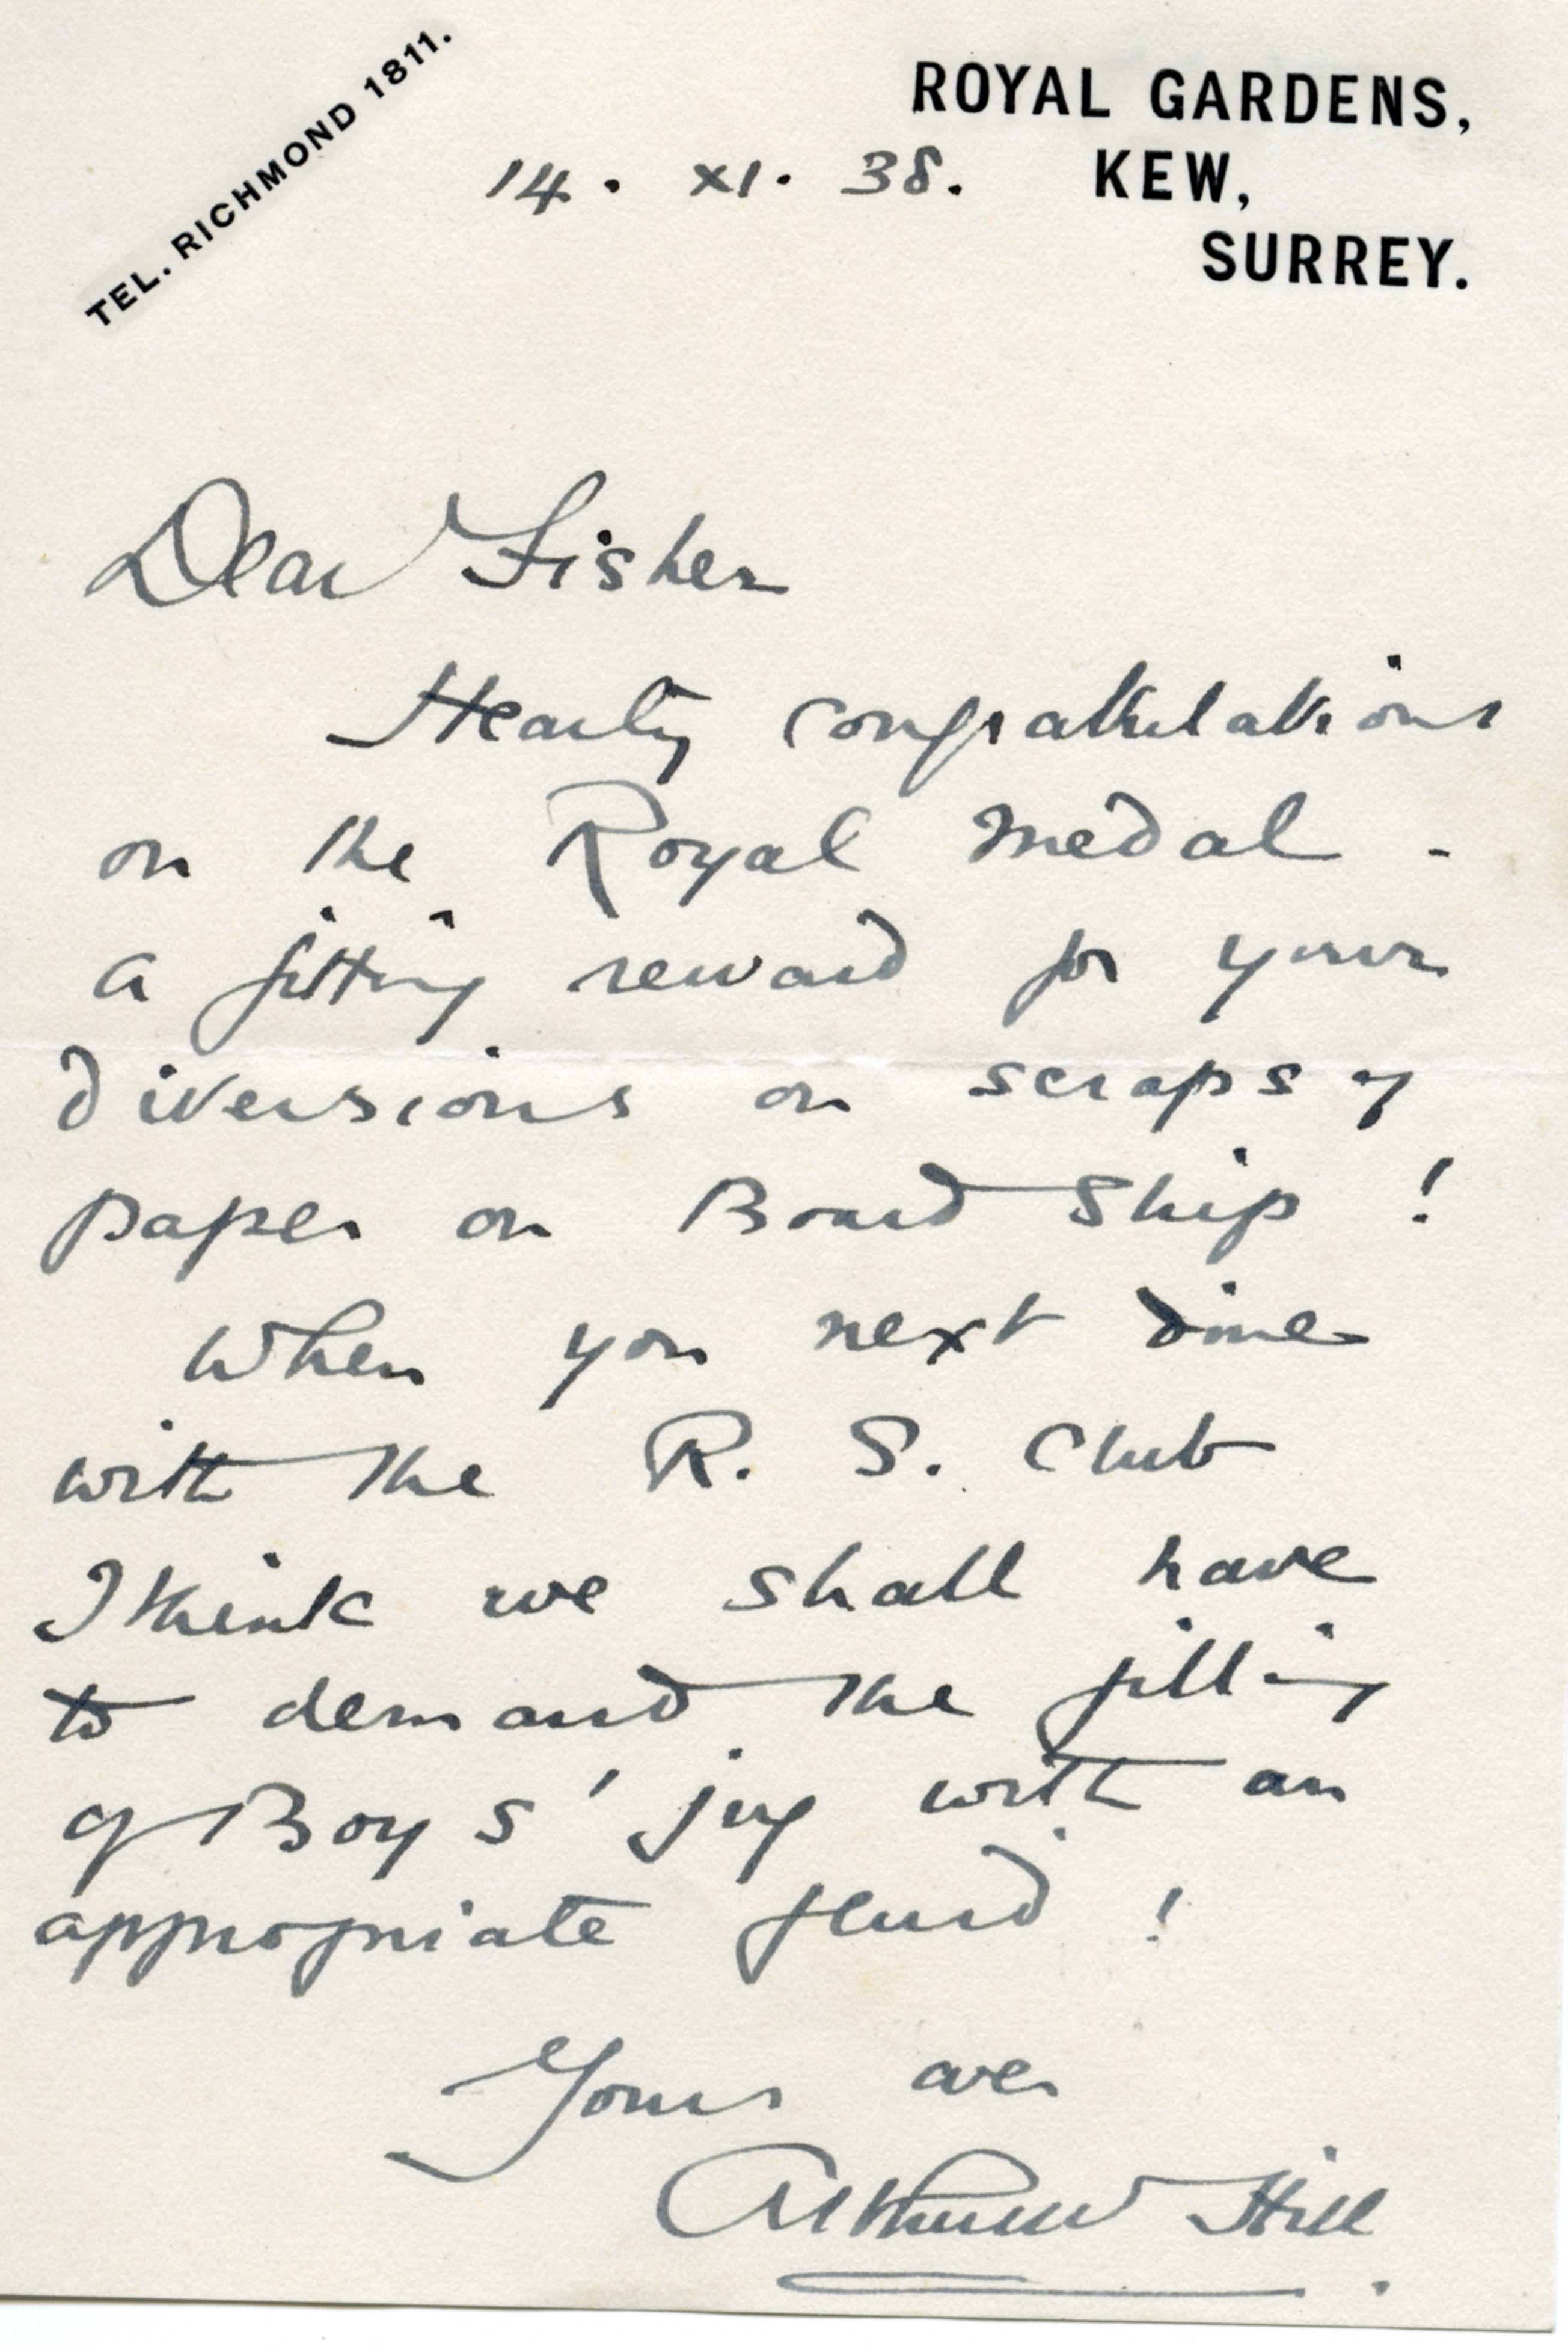 TEL. RICHMOND 1811.
ROYAL GARDENS,
KEW,
SURREY.
14. XI. 38.
Dear Fisher
Hearty congratulations
on the Royal Medal -
a fitting reward for your
diversions on scraps of
paper on Board Ship !
When you next dine
with the R. S. Club
I think we shall have
to demand the filling
of Boys' jug with an
appropriate fluid !
Yours ever
Arthur W Hill.